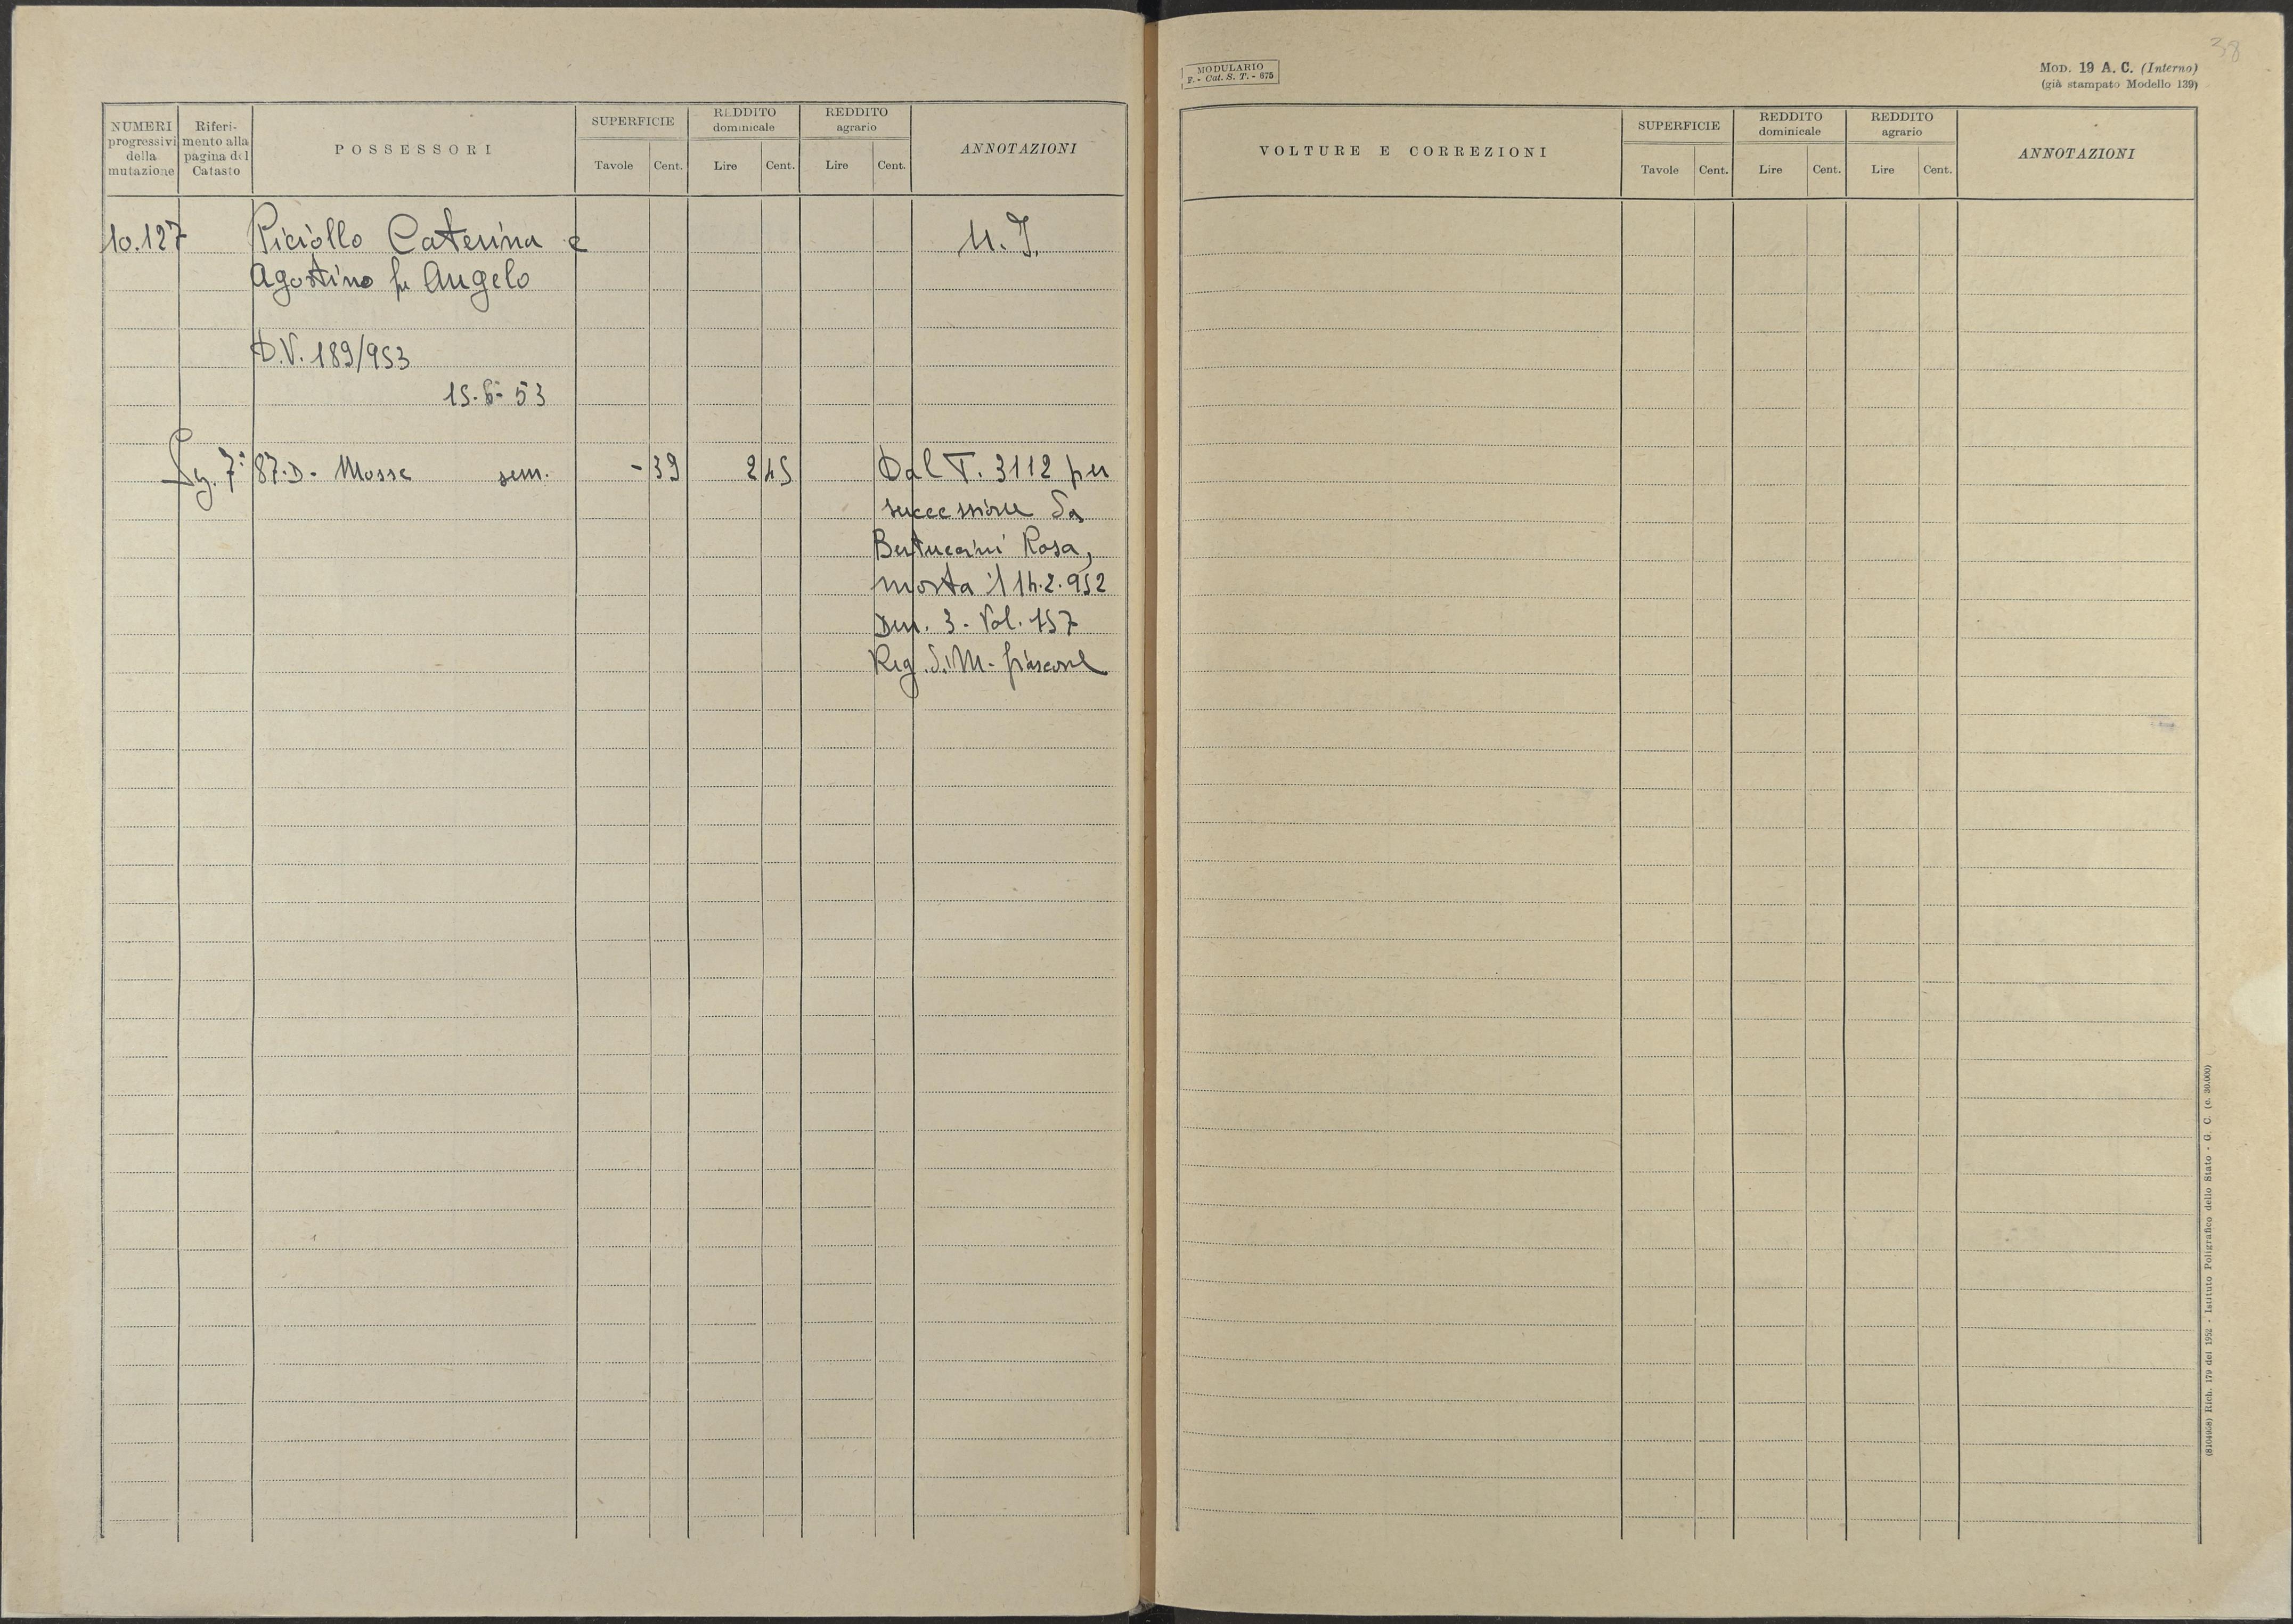 NUMERI progressivi della mutazione
Riferimento alla pagina del Catasto
POSSESSORI
SUPERFICIE
Tavole Cent.
REDDITO dominicale
Lire Cent.
REDDITO agrario
Lire Cent.
ANNOTAZIONI
10.127 Piciollo Caterina e
U. I.
Agostino fu Angelo
D.V. 189/953
15-6-53
Sez. 7ª 87.D - Mosse sem. - 39 2 45 Dal T. 3112 per
successione da
Bertuccini Rosa,
morta il 14.2.952
Den. 3 - Vol. 157
Reg. di M-fiascone
38
MODULARIO
F. - Cat. S. T. - 675
MOD. 19 A. C. (Interno)
(già stampato Modello 139)
VOLTURE E CORREZIONI
SUPERFICIE
Tavole Cent.
REDDITO dominicale
Lire Cent.
REDDITO agrario
Lire Cent.
ANNOTAZIONI
(8104958) Rich. 179 del 1952 - Istituto Poligrafico dello Stato - G. C. (c. 30.000)